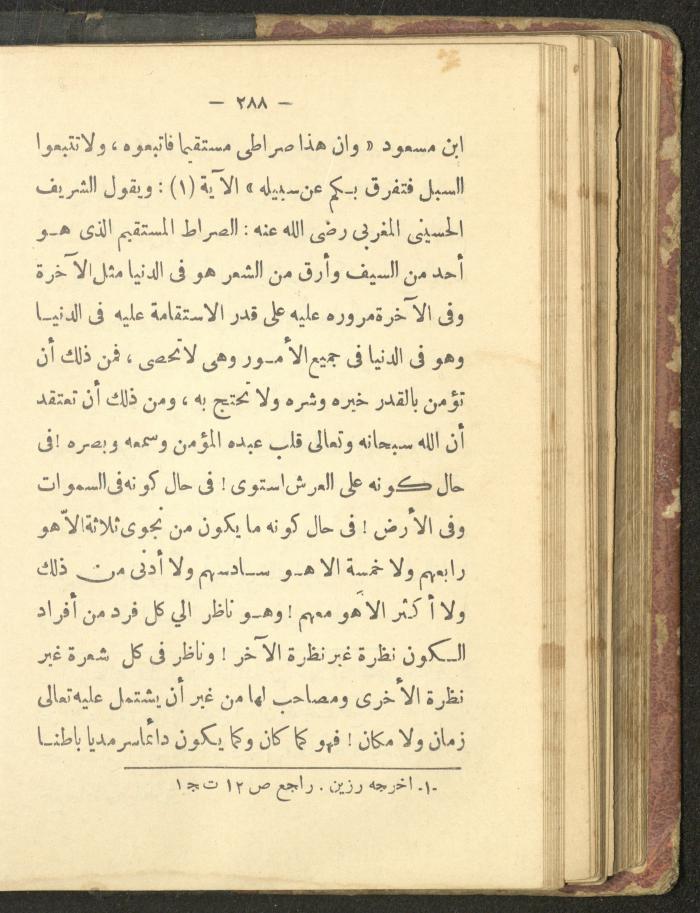 — ٢٨٨ —
ابن مسعود « وان هذا صراطى مستقيما فاتبعوه ، ولا تتبعوا
السبل فتفرق بكم عن سبيله » الآية (١) : ويقول الشريف
الحسينى المغربى رضى الله عنه : الصراط المستقيم الذى هو
أحد من السيف وأرق من الشعر هو فى الدنيا مثل الآخرة
وفى الآخرة مروره عليه على قدر الاستقامة عليه فى الدنيا
وهو فى الدنيا فى جميع الأمور وهى لا تحصى ، فمن ذلك أن
تؤمن بالقدر خيره وشره ولا تحتج به ، ومن ذلك أن تعتقد
أن الله سبحانه وتعالى قلب عبده المؤمن وسمعه وبصره ! فى
حال كونه على العرش استوى ! فى حال كونه فى السموات
وفى الأرض ! فى حال كونه ما يكون من نجوى ثلاثة الاّ هو
رابعهم ولا خمسة الا هو سادسهم ولا أدنى من ذلك
ولا أكثر الا هو معهم ! وهو ناظر الي كل فرد من أفراد
الكون نظرة غير نظرة الآخر ! وناظر فى كل شعرة غير
نظرة الأخرى ومصاحب لها من غير أن يشتمل عليه تعالى
زمان ولا مكان ! فهو كما كان وكما يكون دائما سرمديا باطنا
-١- اخرجه رزين . راجع ص ١٢ ت ج ١